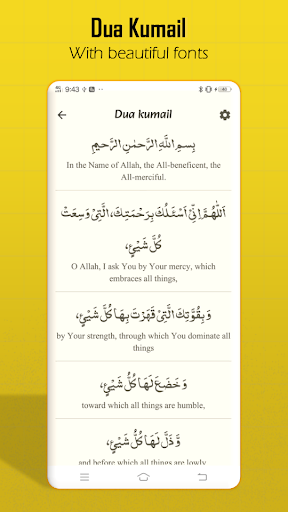 Dua Kumail
With beautiful fonts
9:43
Dua kumail
بِسْمِ اللّٰهِ الرَّحْمٰنِ الرَّحِيْمِ
In the Name of Allah, the All-beneficent, the
All-merciful.
اَللّٰهُمَّ اِنِّيْ اَسْئَلُكَ بِرَحْمَتِكَ، الَّتِيْ وَسِعَتْ
كُلَّ شَيْئٍ،
O Allah, I ask You by Your mercy, which
embraces all things,
وَ بِقُوَّتِكَ الَّتِيْ قَهَرْتَ بِهَا كُلَّ شَيْئٍ،
by Your strength, through which You dominate all
things
وَ خَضَعَ لَهَا كُلُّ شَيْئٍ،
toward which all things are humble,
وَ ذَلَّ لَهَا كُلُّ شَيْئٍ،
and before which all things are lowly